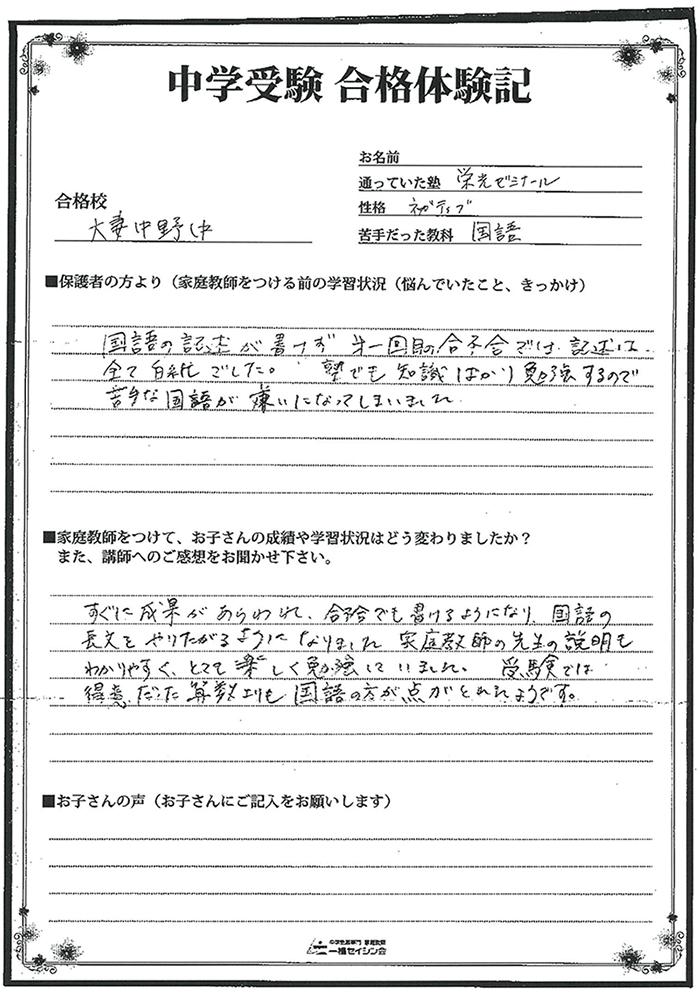 中学受験 合格体験記
お名前
通っていた塾 栄光ゼミナール
合格校
性格 ネガティブ
大妻中野中
苦手だった教科 国語
■保護者の方より（家庭教師をつける前の学習状況（悩んでいたこと、きっかけ）
国語の記述が書けず 第一回目の合不合では 記述は
全て白紙でした。 塾でも知識ばかり勉強するので
苦手な国語が嫌いになってしまいました
■家庭教師をつけて、お子さんの成績や学習状況はどう変わりましたか？
また、講師へのご感想をお聞かせ下さい。
すぐに成果があらわれ、合不合でも書けるようになり、国語の
長文をやりたがるようになりました 家庭教師の先生の説明も
わかりやすく、とても楽しく勉強していました。 受験では
得意だった算数よりも国語の方が点がとれたようです。
■お子さんの声（お子さんにご記入をお願いします）
中学生高専門 家庭教師
一橋セイシン会